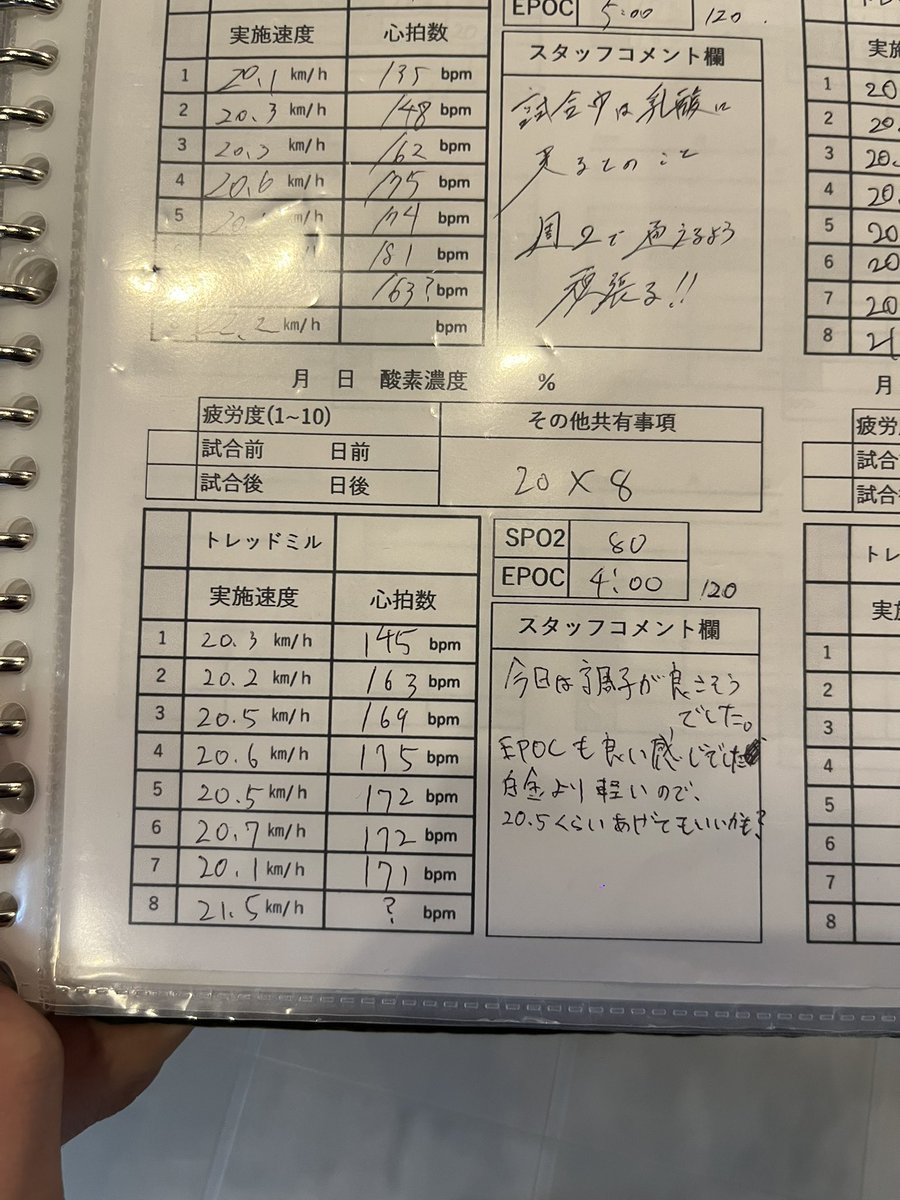 EPOC 5:00 120.
実施速度 心拍数
スタッフコメント欄
1 20.1 km/h 135 bpm
2 20.3 km/h 148 bpm
3 20.3 km/h 162 bpm
4 20.6 km/h 175 bpm
5 km/h 174 bpm
181 bpm
163? bpm
km/h bpm
試合中は乳酸に
とのこと
週2で
頑張る!!
実施
1 20
2 20.
3 20.
4 20
5 20
6 20
7 20
8 21
月 日 酸素濃度 %
疲労度(1~10) その他共有事項
試合前 日前
試合後 日後
20 × 8
トレッドミル
SPO2 80
EPOC 4:00 120
実施速度 心拍数
スタッフコメント欄
1 20.3 km/h 145 bpm
2 20.2 km/h 163 bpm
3 20.5 km/h 169 bpm
4 20.6 km/h 175 bpm
5 20.5 km/h 172 bpm
6 20.7 km/h 172 bpm
7 20.1 km/h 171 bpm
8 21.5 km/h ? bpm
今日は調子が良さそう
でした。
EPOCも良い感じでした
白金より軽いので、
20.5くらいあげてもいいかも?
月
疲労
試合
試合
トレ
実施
1
2
3
4
5
6
7
8